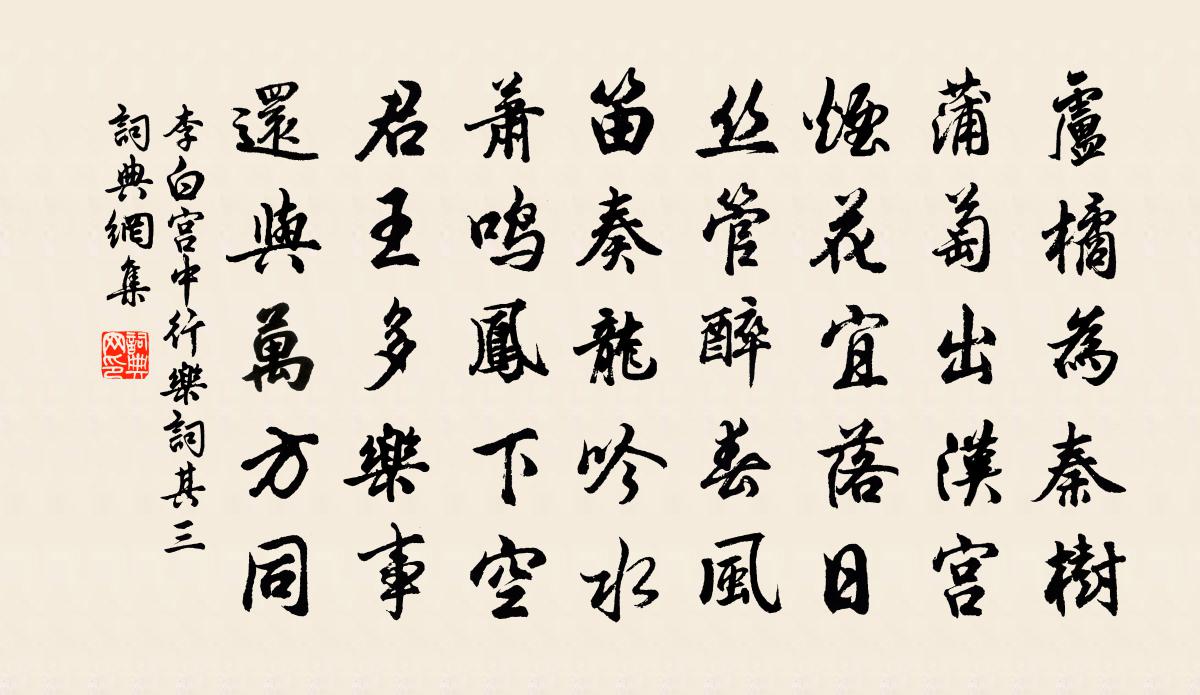 盧橘為秦樹
蒲萄出漢宮
煙花宜落日
丝管醉春風
笛奏龍吟水
蕭鳴鳳下空
君王多樂事
還與萬方同
李白宮中行樂詞其三
詞典網集
詞典网印